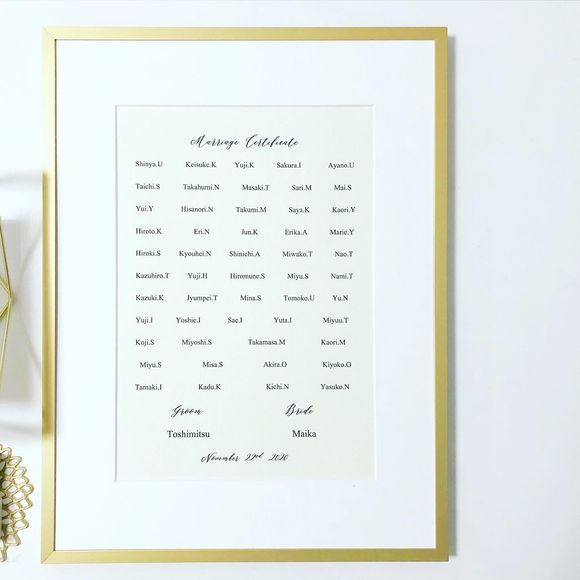 Marriage Certificate
Shinya.U Keisuke.K Yuji.K Sakura.I Ayano.U
Taichi.S Takahumi.N Masaki.T Sari.M Mai.S
Yui.Y Hisanori.N Takumi.M Saya.K Kaori.Y
Hiroto.K Eri.N Jun.K Erika.A Marie.Y
Hiroki.S Kyouhei.N Shinichi.A Miwako.T Nao.T
Kazuhiro.T Yuji.H Hiromune.S Miyu.S Nami.T
Kazuki.K Jyumpei.T Mina.S Tomoko.U Yu.N
Yuji.I Yoshie.I Sae.I Yuta.I Miyuu.T
Koji.S Miyoshi.S Takamasa.M Kaori.M
Miyu.S Misa.S Akira.O Kiyoko.O
Tamaki.I Kadu.K Kichi.N Yasuko.N
Groom Bride
Toshimitsu Maika
November 22nd 2020